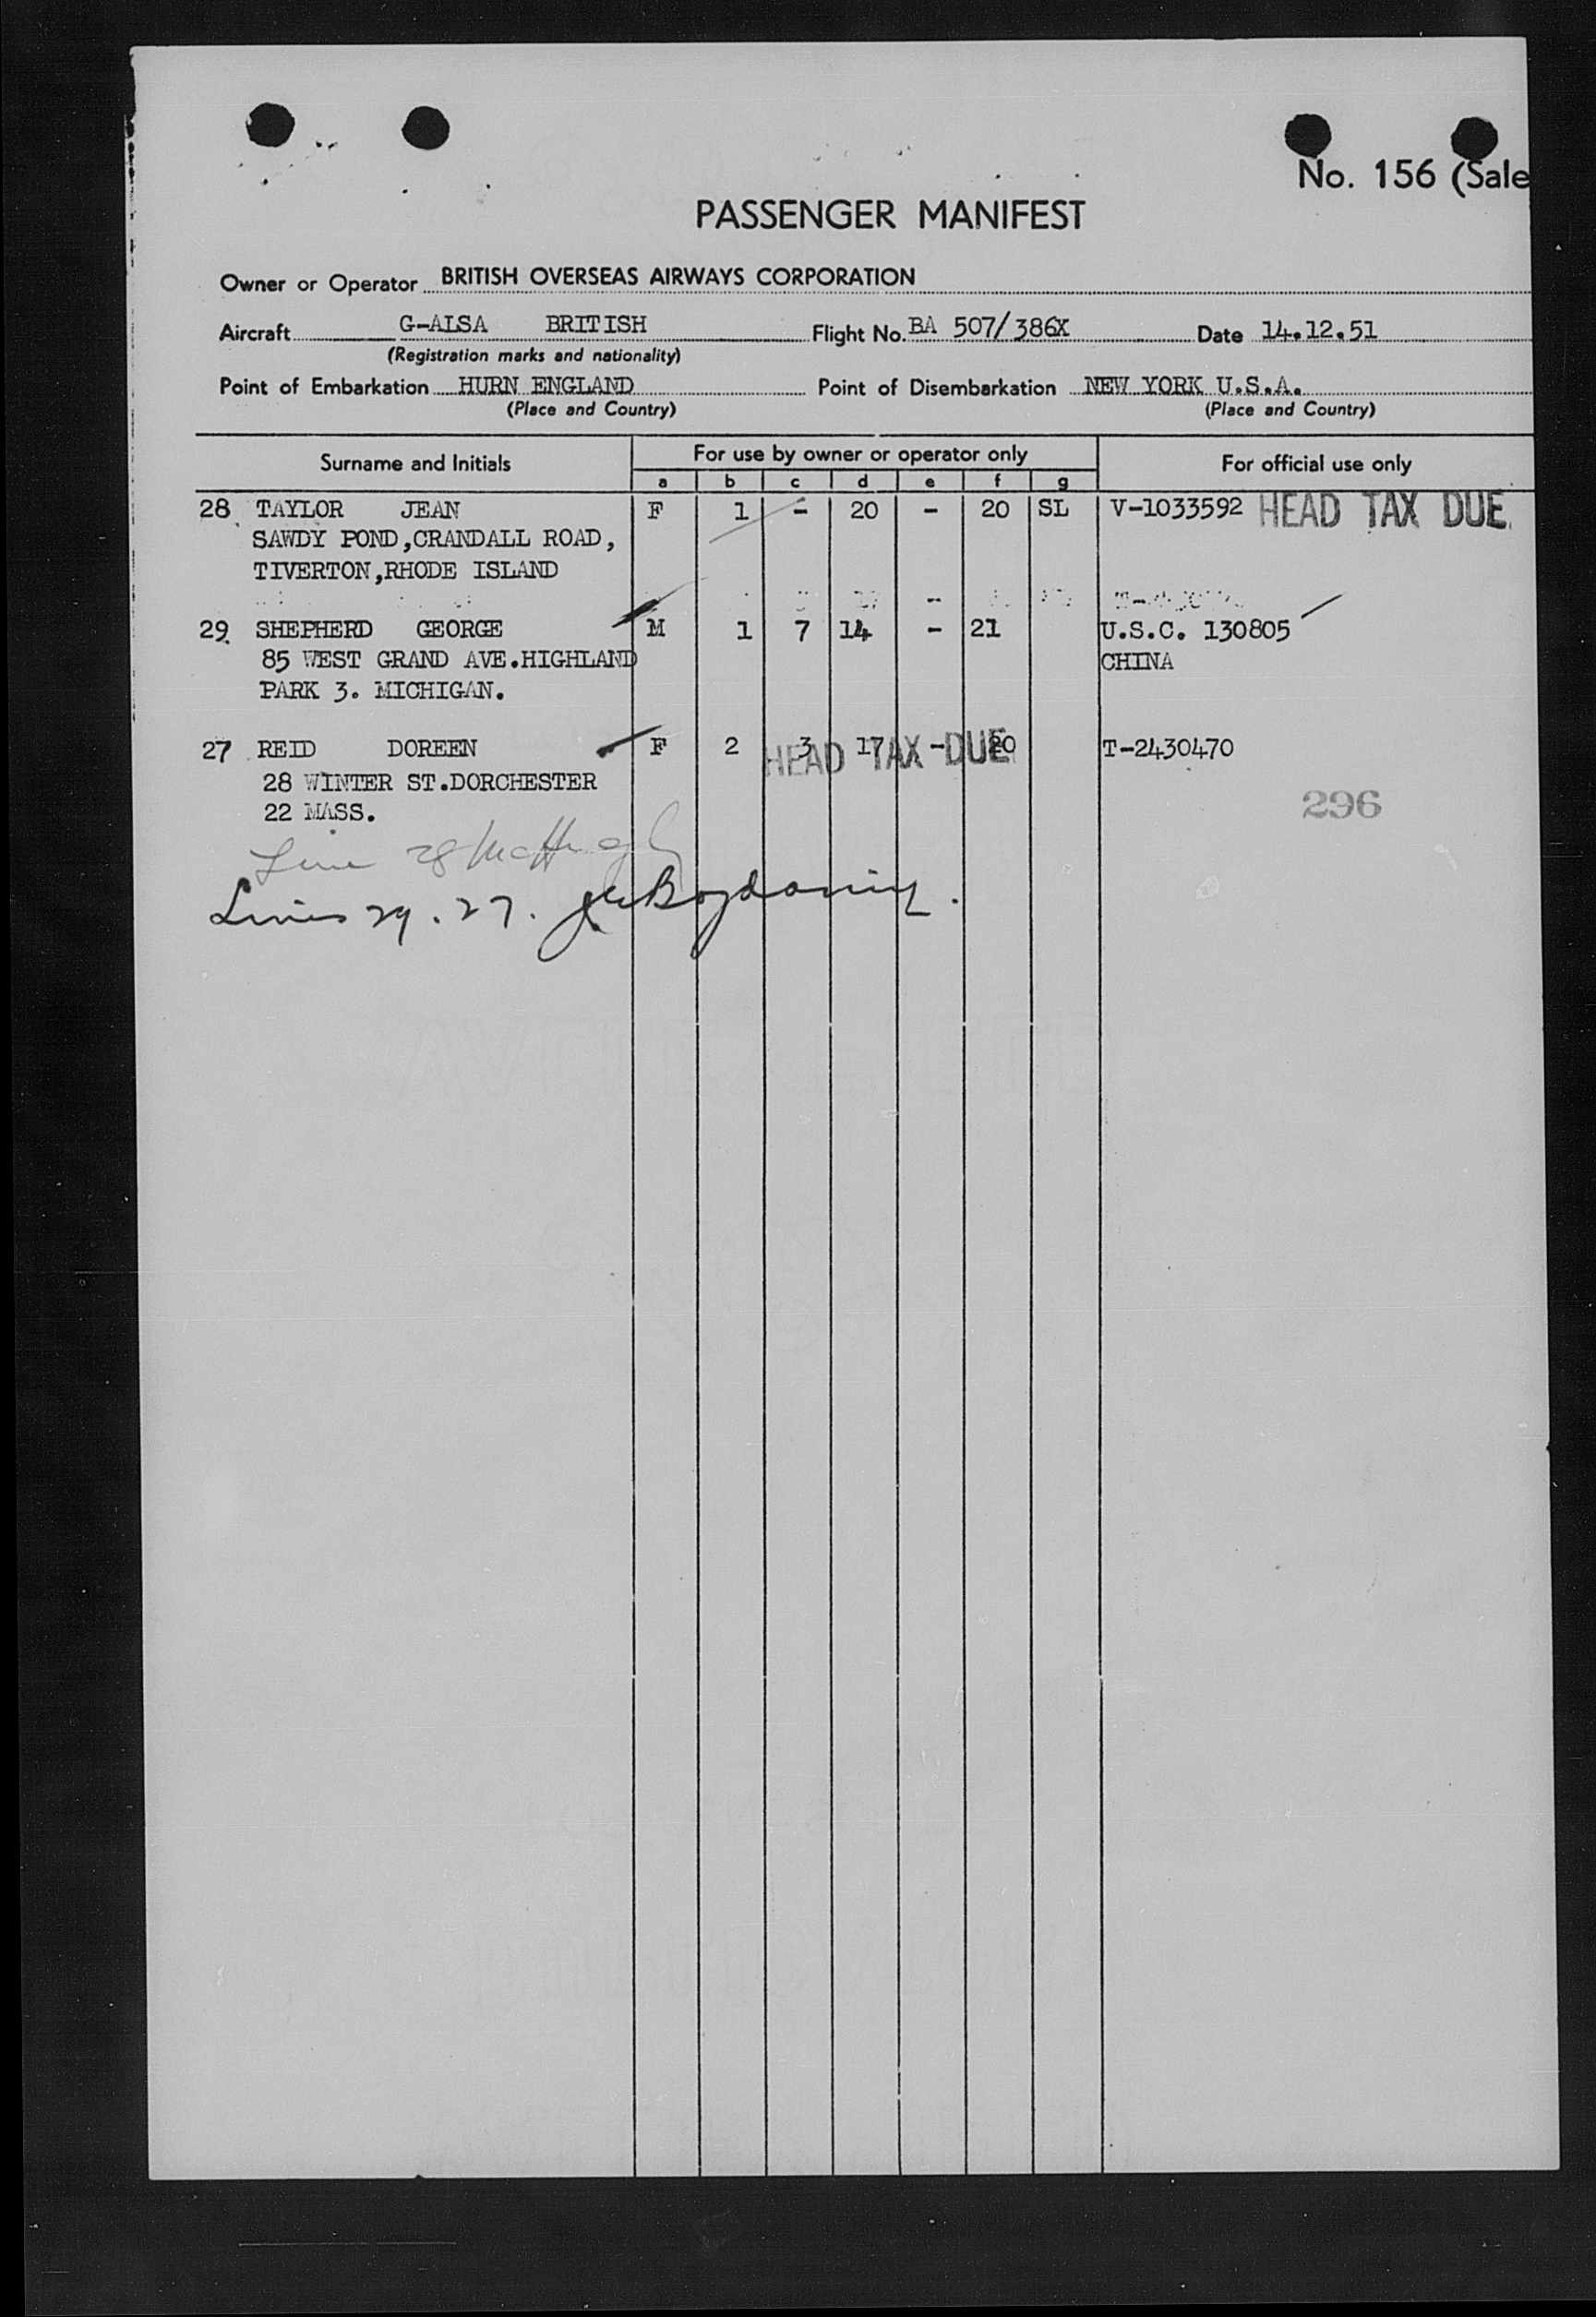 No. 156 (Sale
PASSENGER MANIFEST
Owner or Operator BRITISH OVERSEAS AIRWAYS CORPORATION
Aircraft G-ALSA BRITISH Flight No. BA 507/386X Date 14.12.51
(Registration marks and nationality)
Point of Embarkation HURN ENGLAND Point of Disembarkation NEW YORK U.S.A.
(Place and Country) (Place and Country)
Surname and Initials For use by owner or operator only For official use only
a b c d e f g
28 TAYLOR JEAN F 1 - 20 - 20 SL V-1033592 HEAD TAX DUE
SAWDY POND,CRANDALL ROAD,
TIVERTON,RHODE ISLAND
29. SHEPHERD GEORGE M 1 7 14 - 21 U.S.C. 130805
85 WEST GRAND AVE.HIGHLAND CHINA
PARK 3. MICHIGAN.
27 REID DOREEN F 2 3 17 - 20 T-2430470
HEAD TAX DUE
28 WINTER ST.DORCHESTER
22 MASS.
296
Line 28
Lines 29.27.